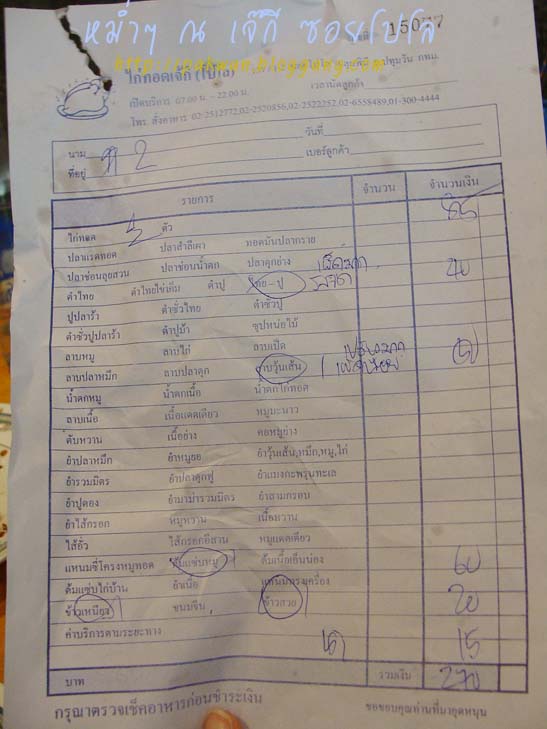 หม่ำๆ ณ เจ๊กี ซอยโปโล
ไก่ทอดเจ๊กี (โปโล)
เปิดบริการ 07.00 น. - 22.00 น. เวลานัดลูกค้า
โทร. สั่งอาหาร 02-2512772,02-2520856,02-2522252,02-6558489,01-300-4444
นาม วันที่
ที่อยู่ เบอร์ลูกค้า
รายการ จำนวน จำนวนเงิน
ไก่ทอด ตัว
ปลาแรดทอด ปลาสำลีเผา ทอดมันปลากราย
ปลาช่อนลุยสวน ปลาช่อนน้ำตก ปลาดุกย่าง
ตำไทย ตำไทยไข่เค็ม ตำปู ไทย - ปู 40
ปูปลาร้า ตำซั่วไทย ตำซั่วปู
ตำซั่วปูปลาร้า ตำปูม้า ซุปหน่อไม้
ลาบหมู ลาบไก่ ลาบเป็ด
ลาบปลาหมึก ลาบปลาดุก ลาบวุ้นเส้น
น้ำตกหมู น้ำตกเนื้อ น้ำตกไก่ทอด
ลาบเนื้อ เนื้อแดดเดียว หมูมะนาว
ตับหวาน เนื้อย่าง คอหมูย่าง
ยำปลาหมึก ยำหมูยอ ยำวุ้นเส้น,หมึก,หมู,ไก่
ยำรวมมิตร ยำปลาดุกฟู ยำแมงกะพรุนทะเล
ยำปูดอง ยำมาม่ารวมมิตร ยำสามกรอบ
ยำไส้กรอก หมูหวาน เนื้อหวาน
ไส้อั่ว ไส้กรอกอีสาน หมูแดดเดียว
แหนมซี่โครงหมูทอด ต้มแซ่บหมู ต้มเนื้อเอ็นน่อง 60
ต้มแซ่บไก่บ้าน ยำเนื้อ แหนมทรงเครื่อง
ข้าวเหนียว ขนมจีน ข้าวสวย 20
ค่าบริการตามระยะทาง
15
บาท รวมเงิน 270
กรุณาตรวจเช็คอาหารก่อนชำระเงิน ขอขอบคุณท่านที่มาอุดหนุน